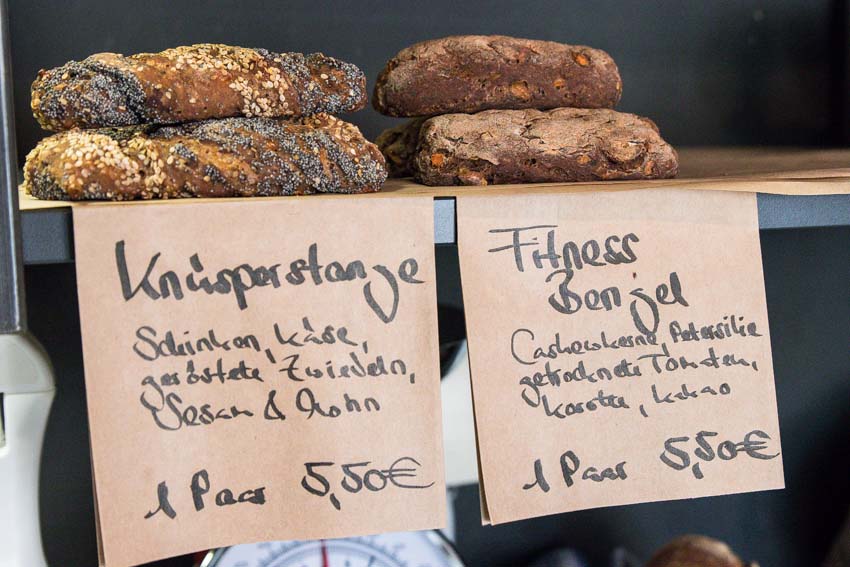 Knusperstange
Schinken, Käse,
geröstete Zwiebeln,
Sesam & Mohn
1 Paar 5,50€
Fitness
Bengel
Cashewkerne, Petersilie
getrocknete Tomaten,
Karotte, Kakao
1 Paar 5,50€